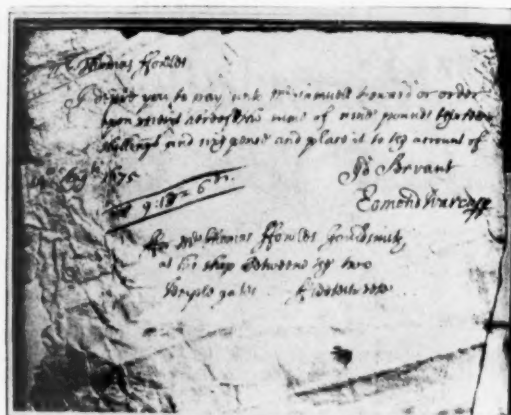 Thomas ffowles
I pray you to pay unto Mr Samuell Howard or order
upon receipt hereof the sume of nine pounds thirteen
shillings and six pence and place it to the account of
14th Augt 1675 Yor Servant
9:13:6 Edmond Warcupp
For Mr Thomas ffowles Gouldsmith
at his shop betweene the two
temple gates ffleetestreete